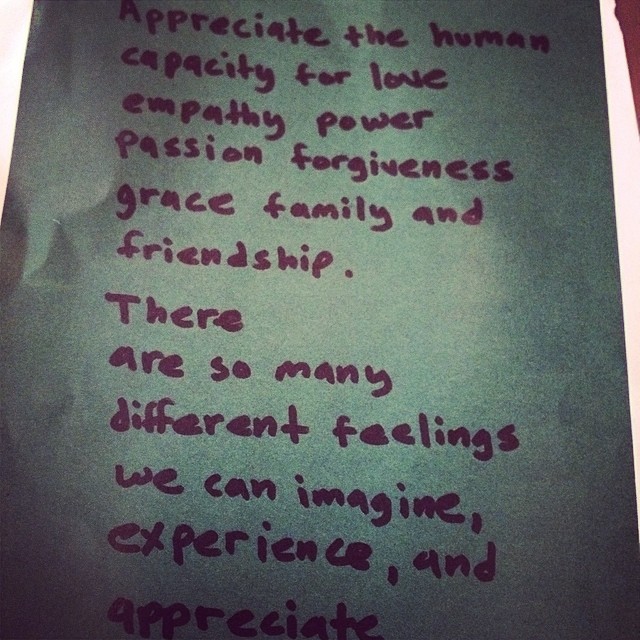 Appreciate the human
capacity for love
empathy power
passion forgiveness
grace family and
friendship.
There
are so many
different feelings
we can imagine,
experience, and
appreciate